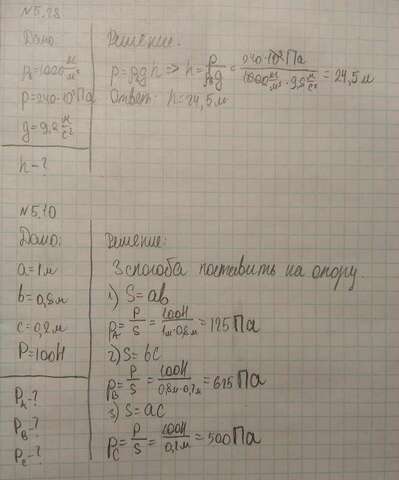 №5.28
Дано:
ρ₁=1000 кг/м³
p=240·10³Па
g=9,8 м/с²
h-?
Решение.
p=ρgh => h = p/ρg = 240·10³Па / 1000 кг/м³ · 9,8 м/с² = 24,5 м
Ответ: h=24,5 м
№5.10
Дано:
a=1м
b=0,8м
c=0,2м
P=100Н
P_A-?
P_B-?
P_C-?
Решение:
3 способа поставить на опору.
1) S=ab
P_A = P/S = 100Н / 1м·0,8м = 125 Па
2) S=bc
P_B = P/S = 100Н / 0,8м·0,2м = 625 Па
3) S=ac
P_C = P/S = 100Н / 0,2м = 500 Па